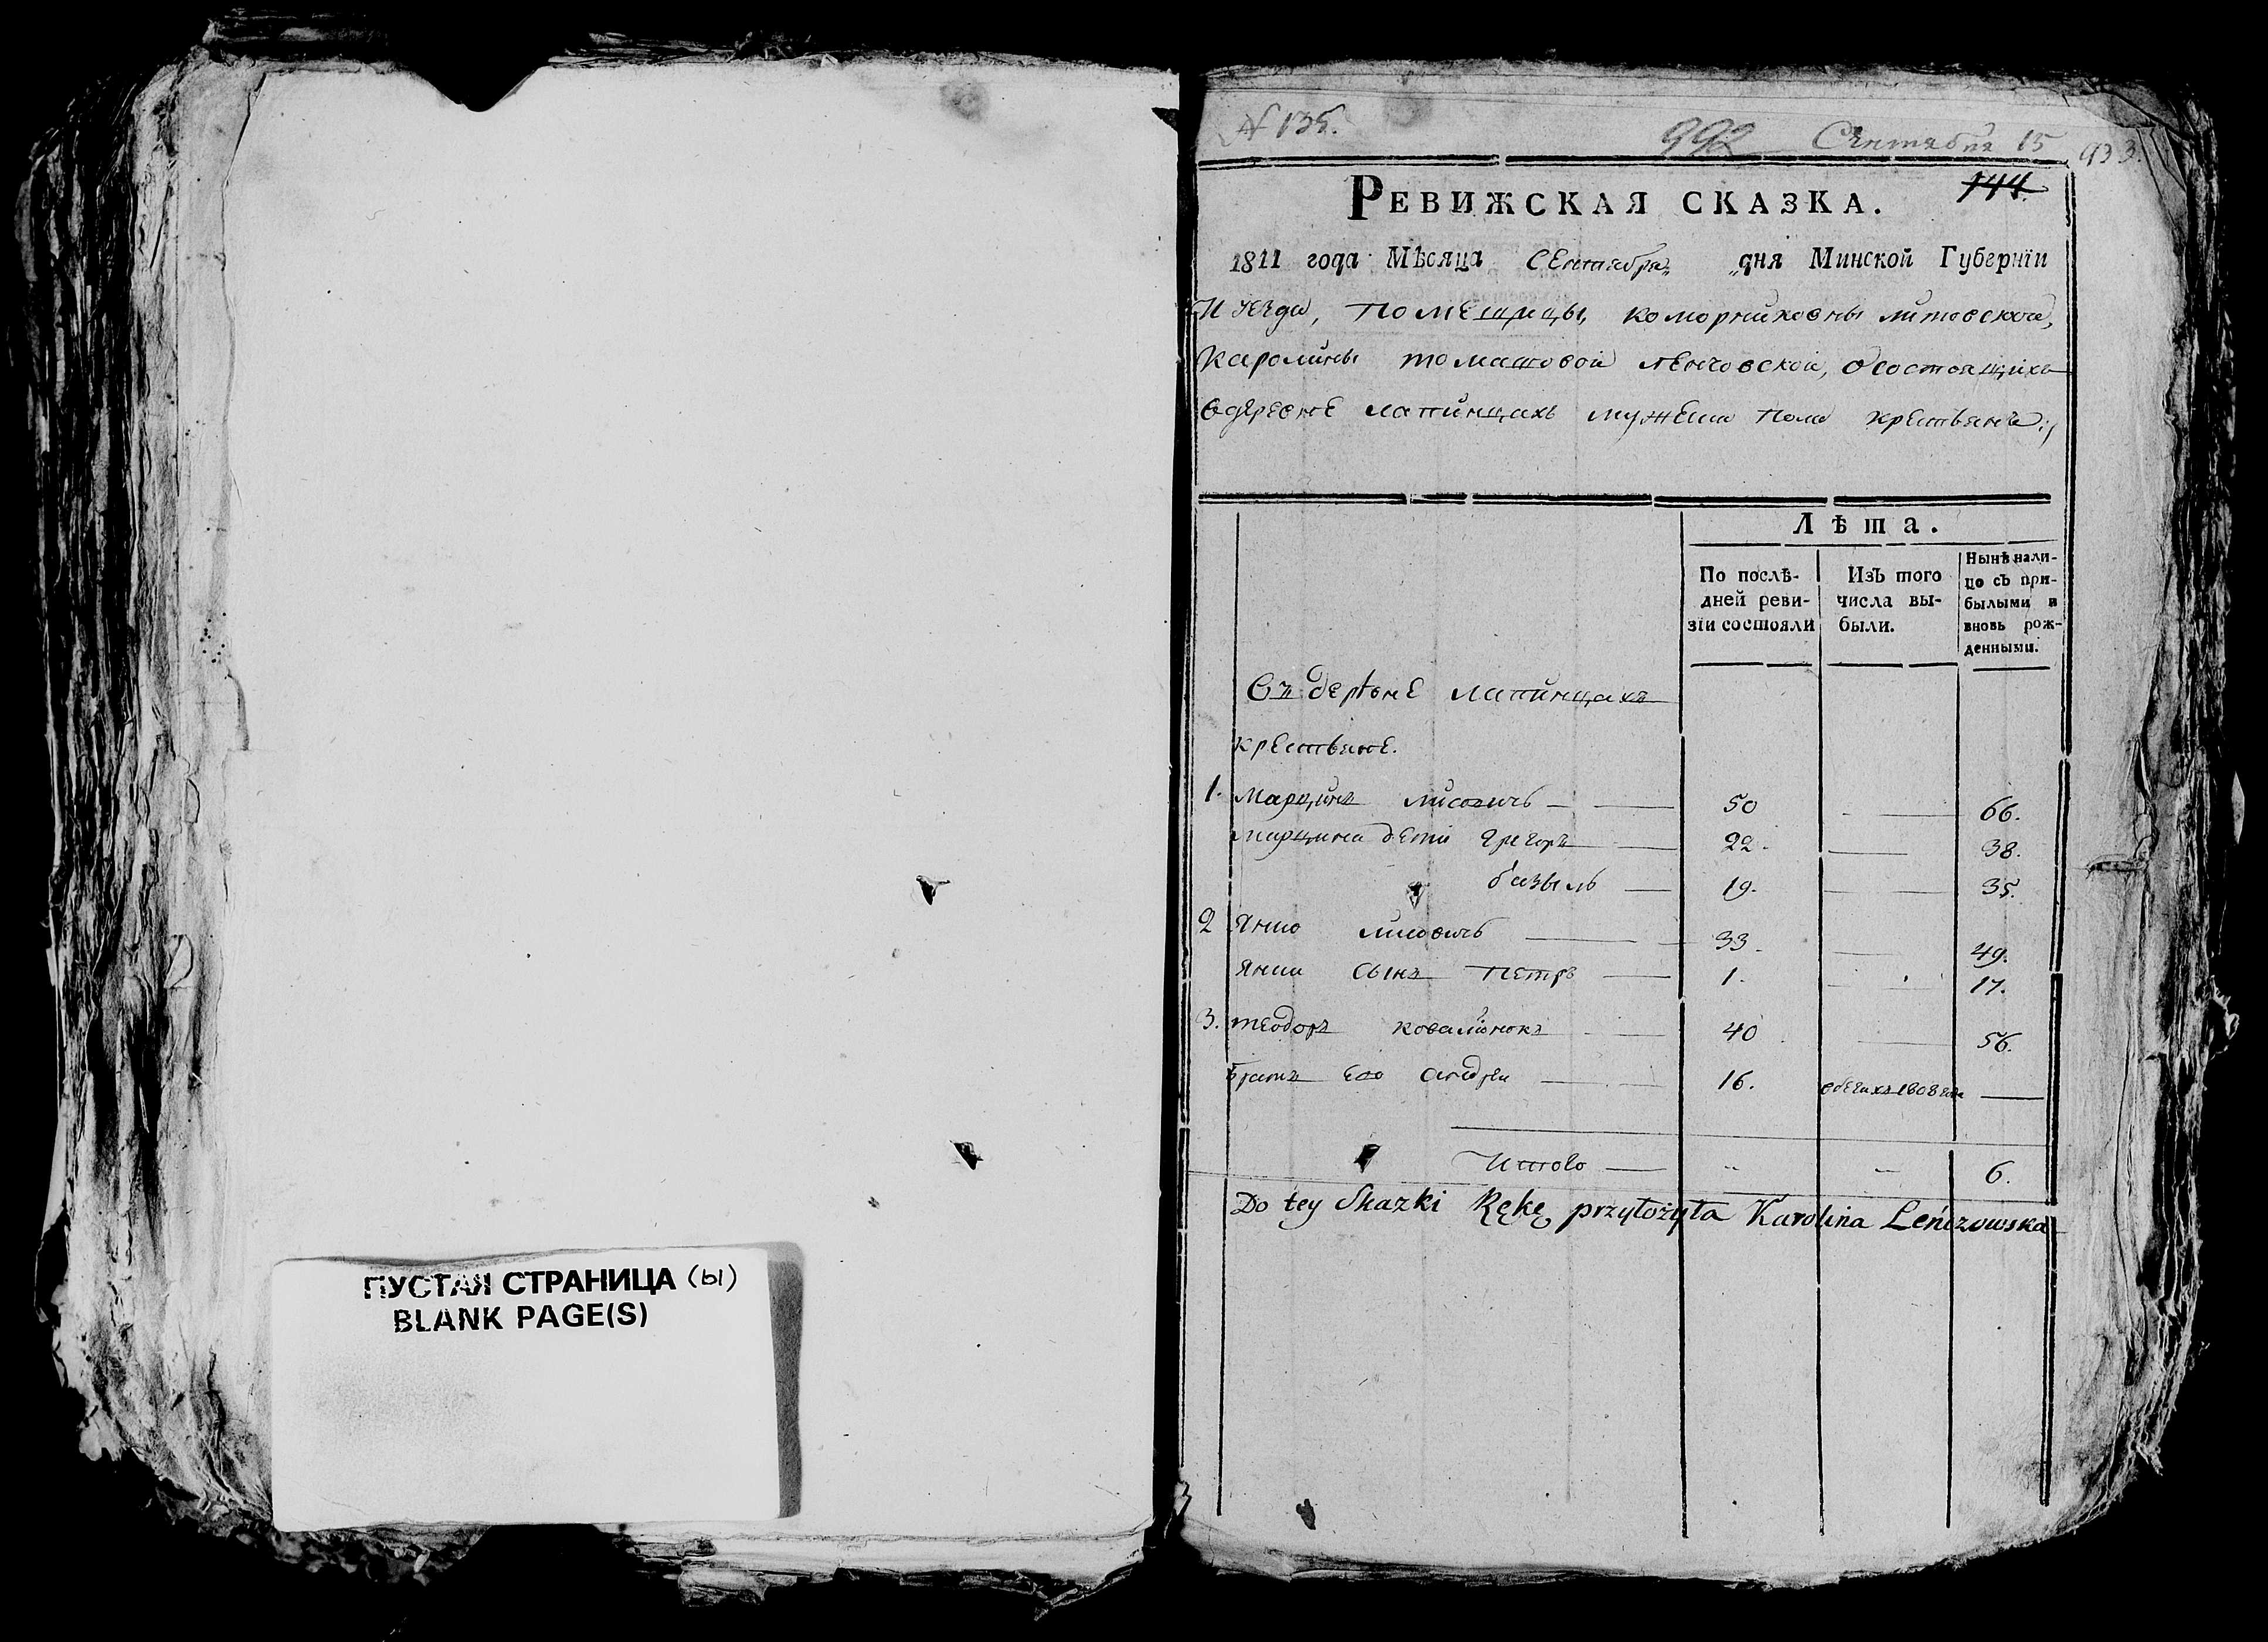 N 135.
992 Сентября 15
933.
144.
Ревижская сказка.
1811 года Мѣсяца Сентября „ дня Минской Губернїи
И уезда, помещицы, коморниковны литовской,
Каролины томашовой ленчовской, осостоящихъ
вдеревне лапинцахъ мужеска пола крестьянъ:
Лѣта.
По послѣ-
дней реви-
зїи состояли
Изъ того
числа вы-
были.
Нынѣ нали-
цо съ при-
былыми и
вновь рож-
денными.
Въ деревне лапинцахъ
крестьяне.
1. Марцинъ лисовичъ — 50 — 66.
марцина дети Григоръ — 22. — 38.
базыль — 19. — 35.
2 Янко лисовичъ — 33. — 49.
Янки сынъ петръ — 1. — 17.
3. теодоръ ковалионокъ — 40 — 56.
братъ его андреи — 16. вбегахъ 1808 года —
Итого — „ „ 6.
Do tey Skazki Rękę przyłożyła Karolina Leńczowska
ПУСТАЯ СТРАНИЦА (ы)
BLANK PAGE(S)